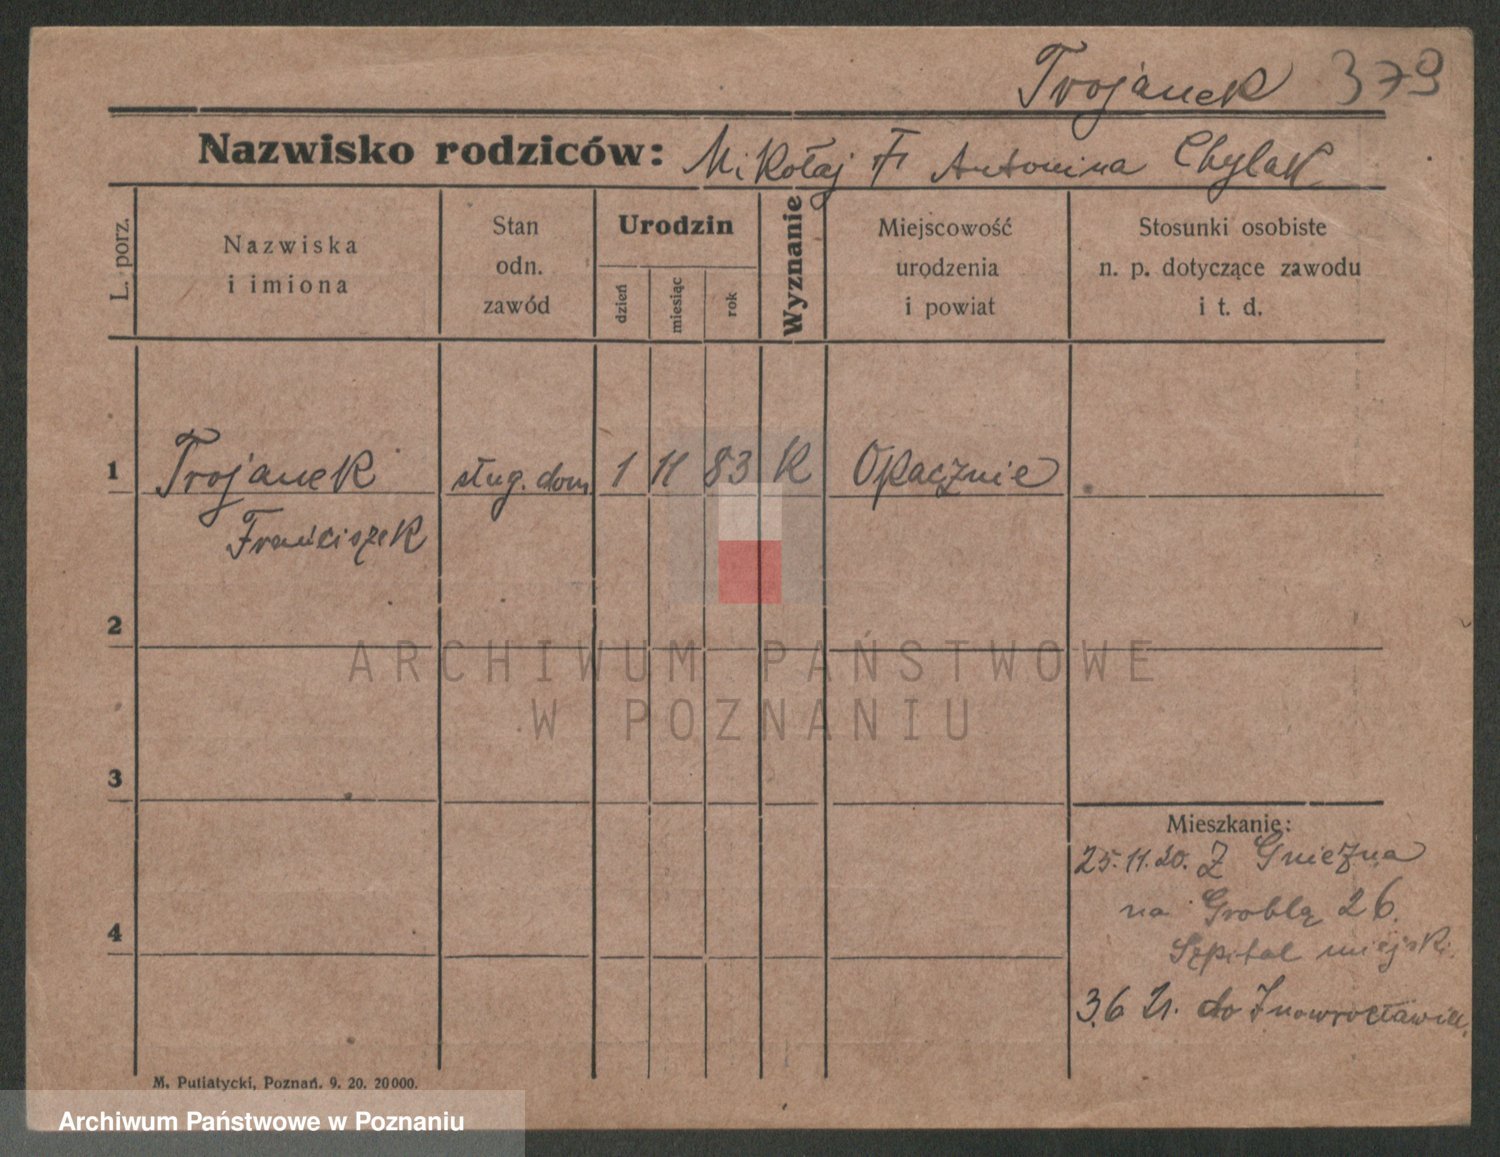 Trojanek 379
Nazwisko rodziców: Mikołaj Antonina Chylak
L. porz.
Nazwiska
i imiona
Stan
odn.
zawód
Urodzin
dzień
miesiąc
rok
Wyznanie
Miejscowość
urodzenia
i powiat
Stosunki osobiste
n. p. dotyczące zawodu
i t. d.
1 Trojanek sług. dom. 1 11 83 K Opacznie
Franciszek
2
3
4
Mieszkanie:
25.11.20. Z Gniezna
na Groblą 26.
Szpital miejski.
3.6 21. do Inowrocławia.
M. Putiatycki, Poznań. 9. 20. 20000.
ARCHIWUM PAŃSTWOWE
W POZNANIU
Archiwum Państwowe w Poznaniu